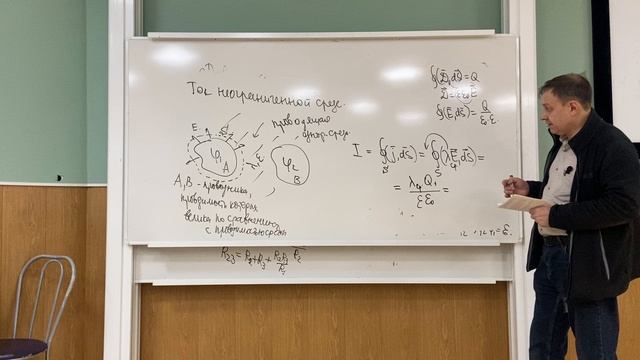 Ток неограниченной среде.
проводящая
однор. среда
E
S
φ₁
A
λ, ε
φ₂
B
A, B - проводники,
проводимость которых
велика по сравнению
с проводимостью среды
∮(D⃗,dS⃗)=Q
D⃗=εε₀E⃗
∮(E⃗,dS⃗)=Q/(ε₀ε)
I = ∮(j⃗,dS⃗) = ∮(λE⃗,dS⃗)=
S
S
= λQ₁/(εε₀) =
= ε.
R₂₃ = R₂+R₃ + R₂R₃/R₁